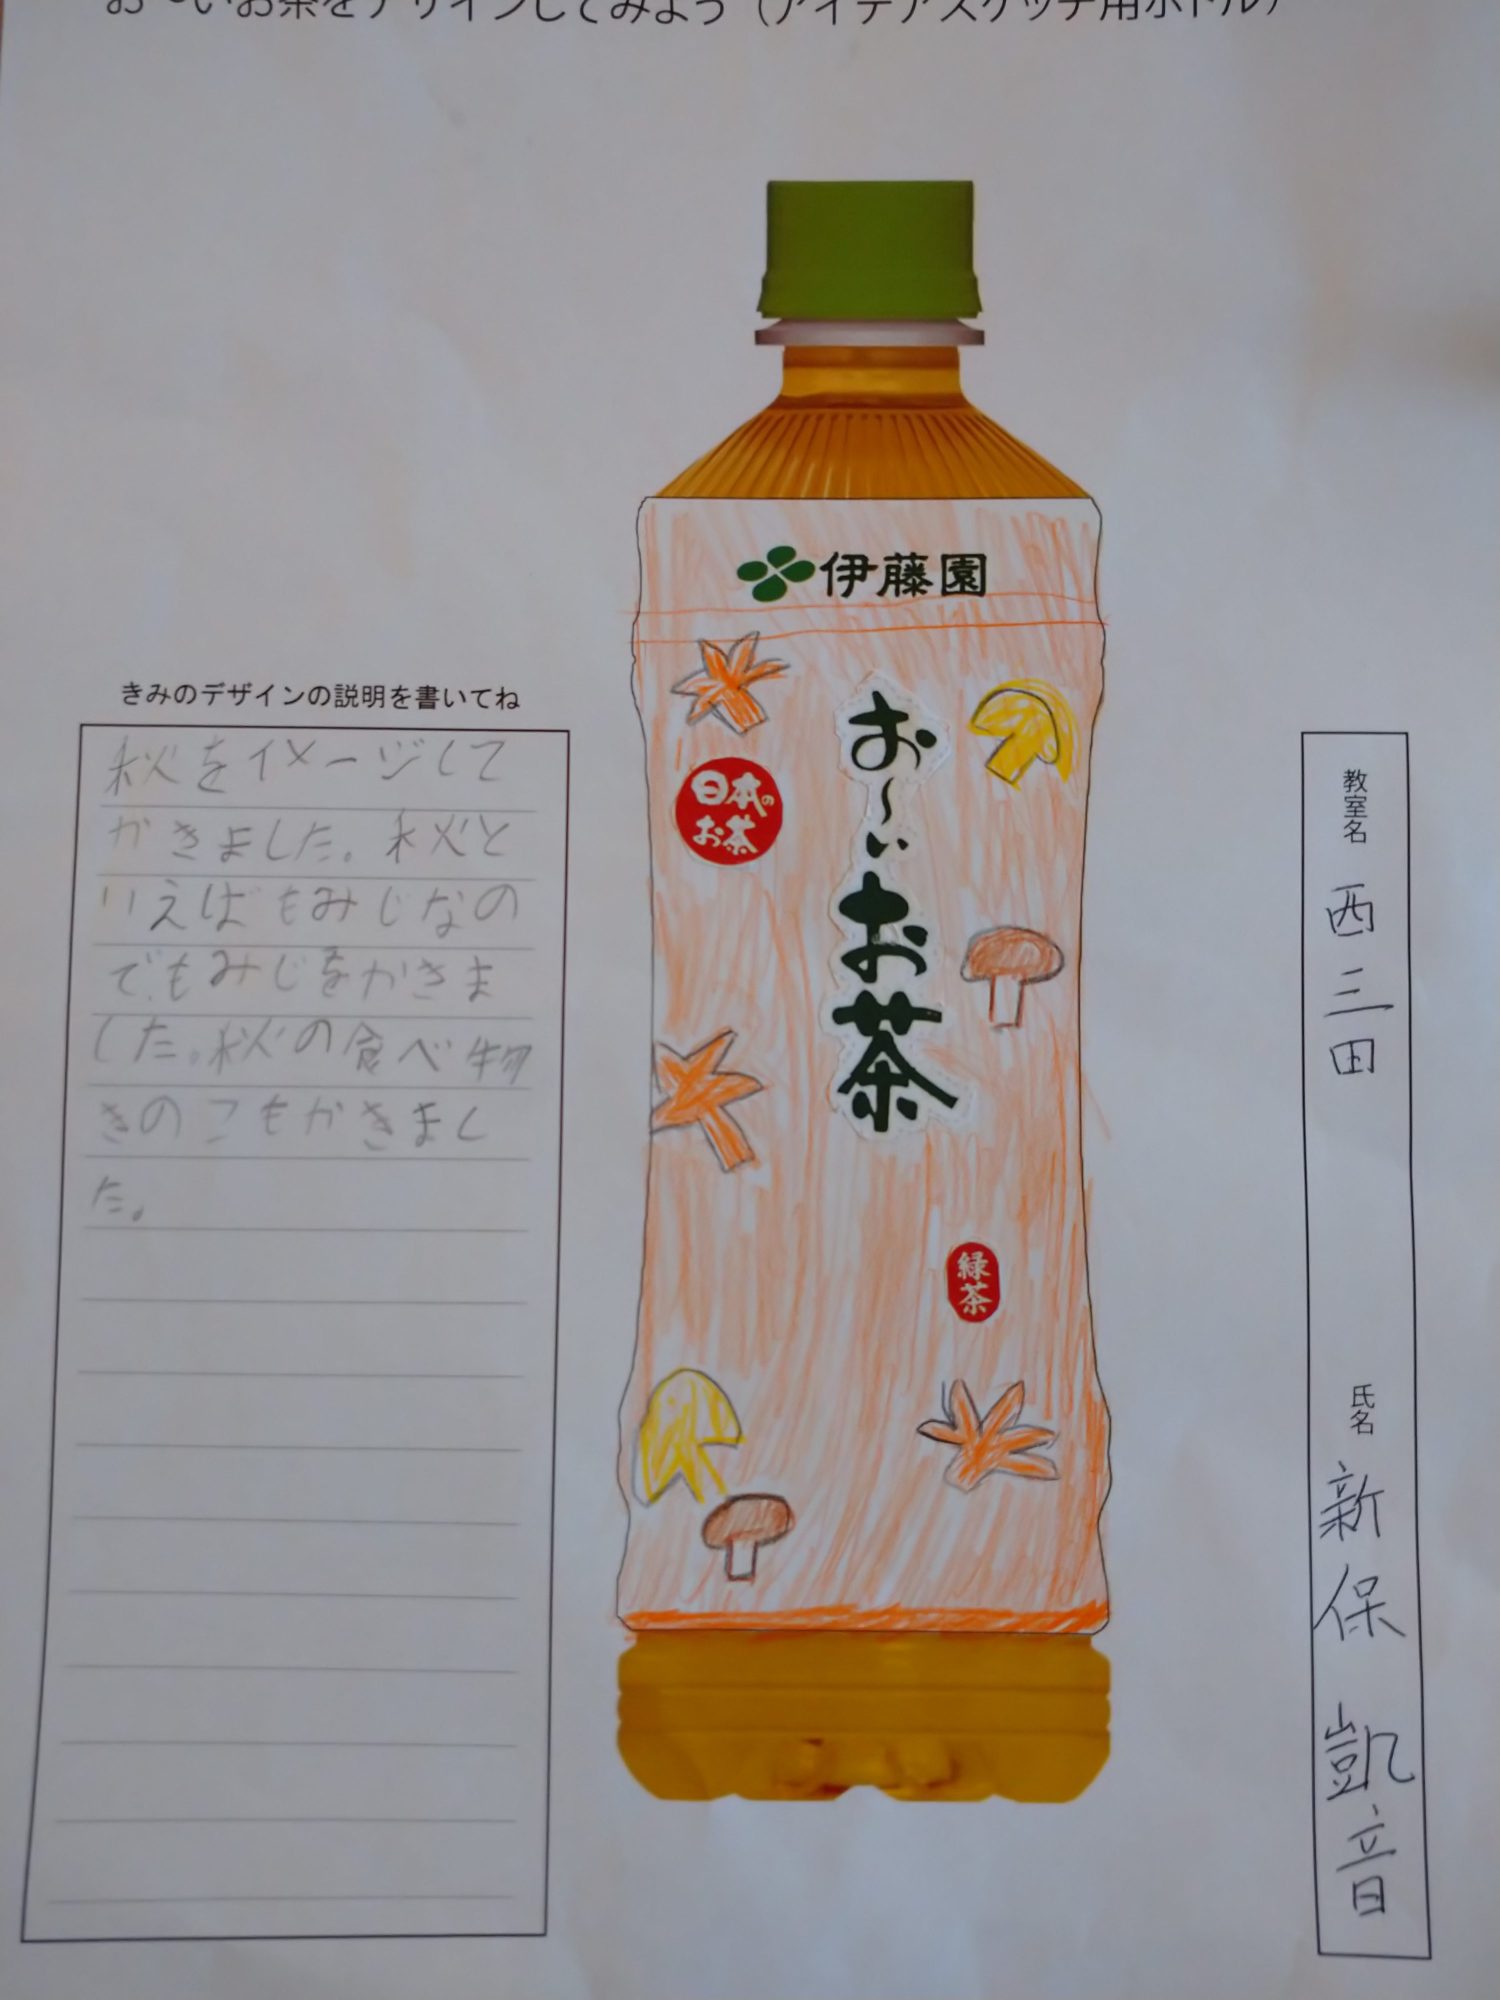 お〜いお茶をデザインしてみよう（アイデアスケッチ用ボトル）
伊藤園
お〜いお茶
日本の
お茶
緑茶
きみのデザインの説明を書いてね
秋をイメージして
かきました。秋と
いえばもみじなの
でもみじをかきま
した。秋の食べ物
きのこもかきまし
た。
教室名 西三田
氏名 新保凱音